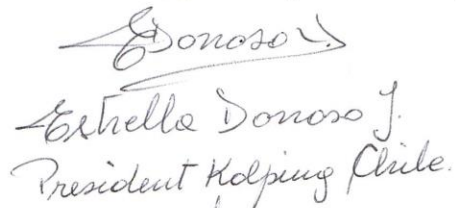 EDonoso J.
Estrella Donoso J.
President Kolping Chile.